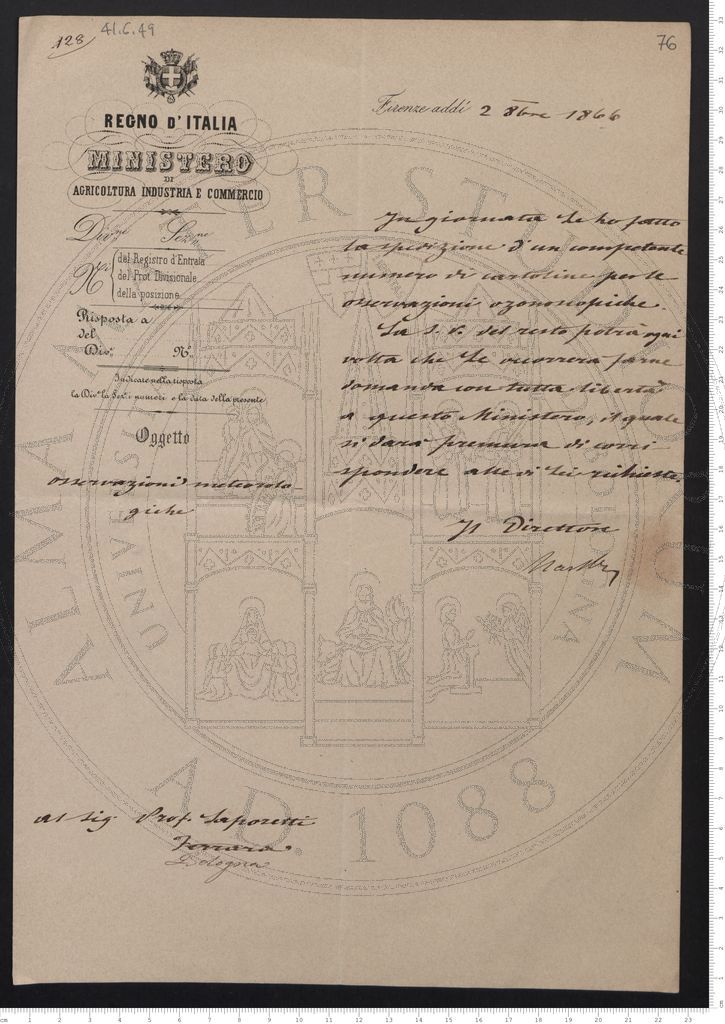 128
41.6.49
76
REGNO D'ITALIA
MINISTERO
DI
AGRICOLTURA INDUSTRIA E COMMERCIO
Firenze addì 2 8bre 1866
Div.ne Sez.ne
N.i
del Registro d'Entrata
del Prot. Divisionale
della posizione
Risposta a
del
Div.e N.o
Indicare nella risposta
la Div.e la Sez.e i numeri e la data della presente
Oggetto
osservazioni meteorolo-
giche
In giornata Le ho fatto
la spedizione d'un competente
numero di cartoline per le
osservazioni ozonoscopiche.
La S. V. del resto potrà ogni
volta che Le occorrerà farne
domanda con tutta libertà
a questo Ministero, il quale
si darà premura di corri-
spondere alle di Lei richieste.
Il Direttore
Al Sig Prof. Saporetti
Ferrara
Bologna
ALMA MATER STUDIORUM
A.D. 1088